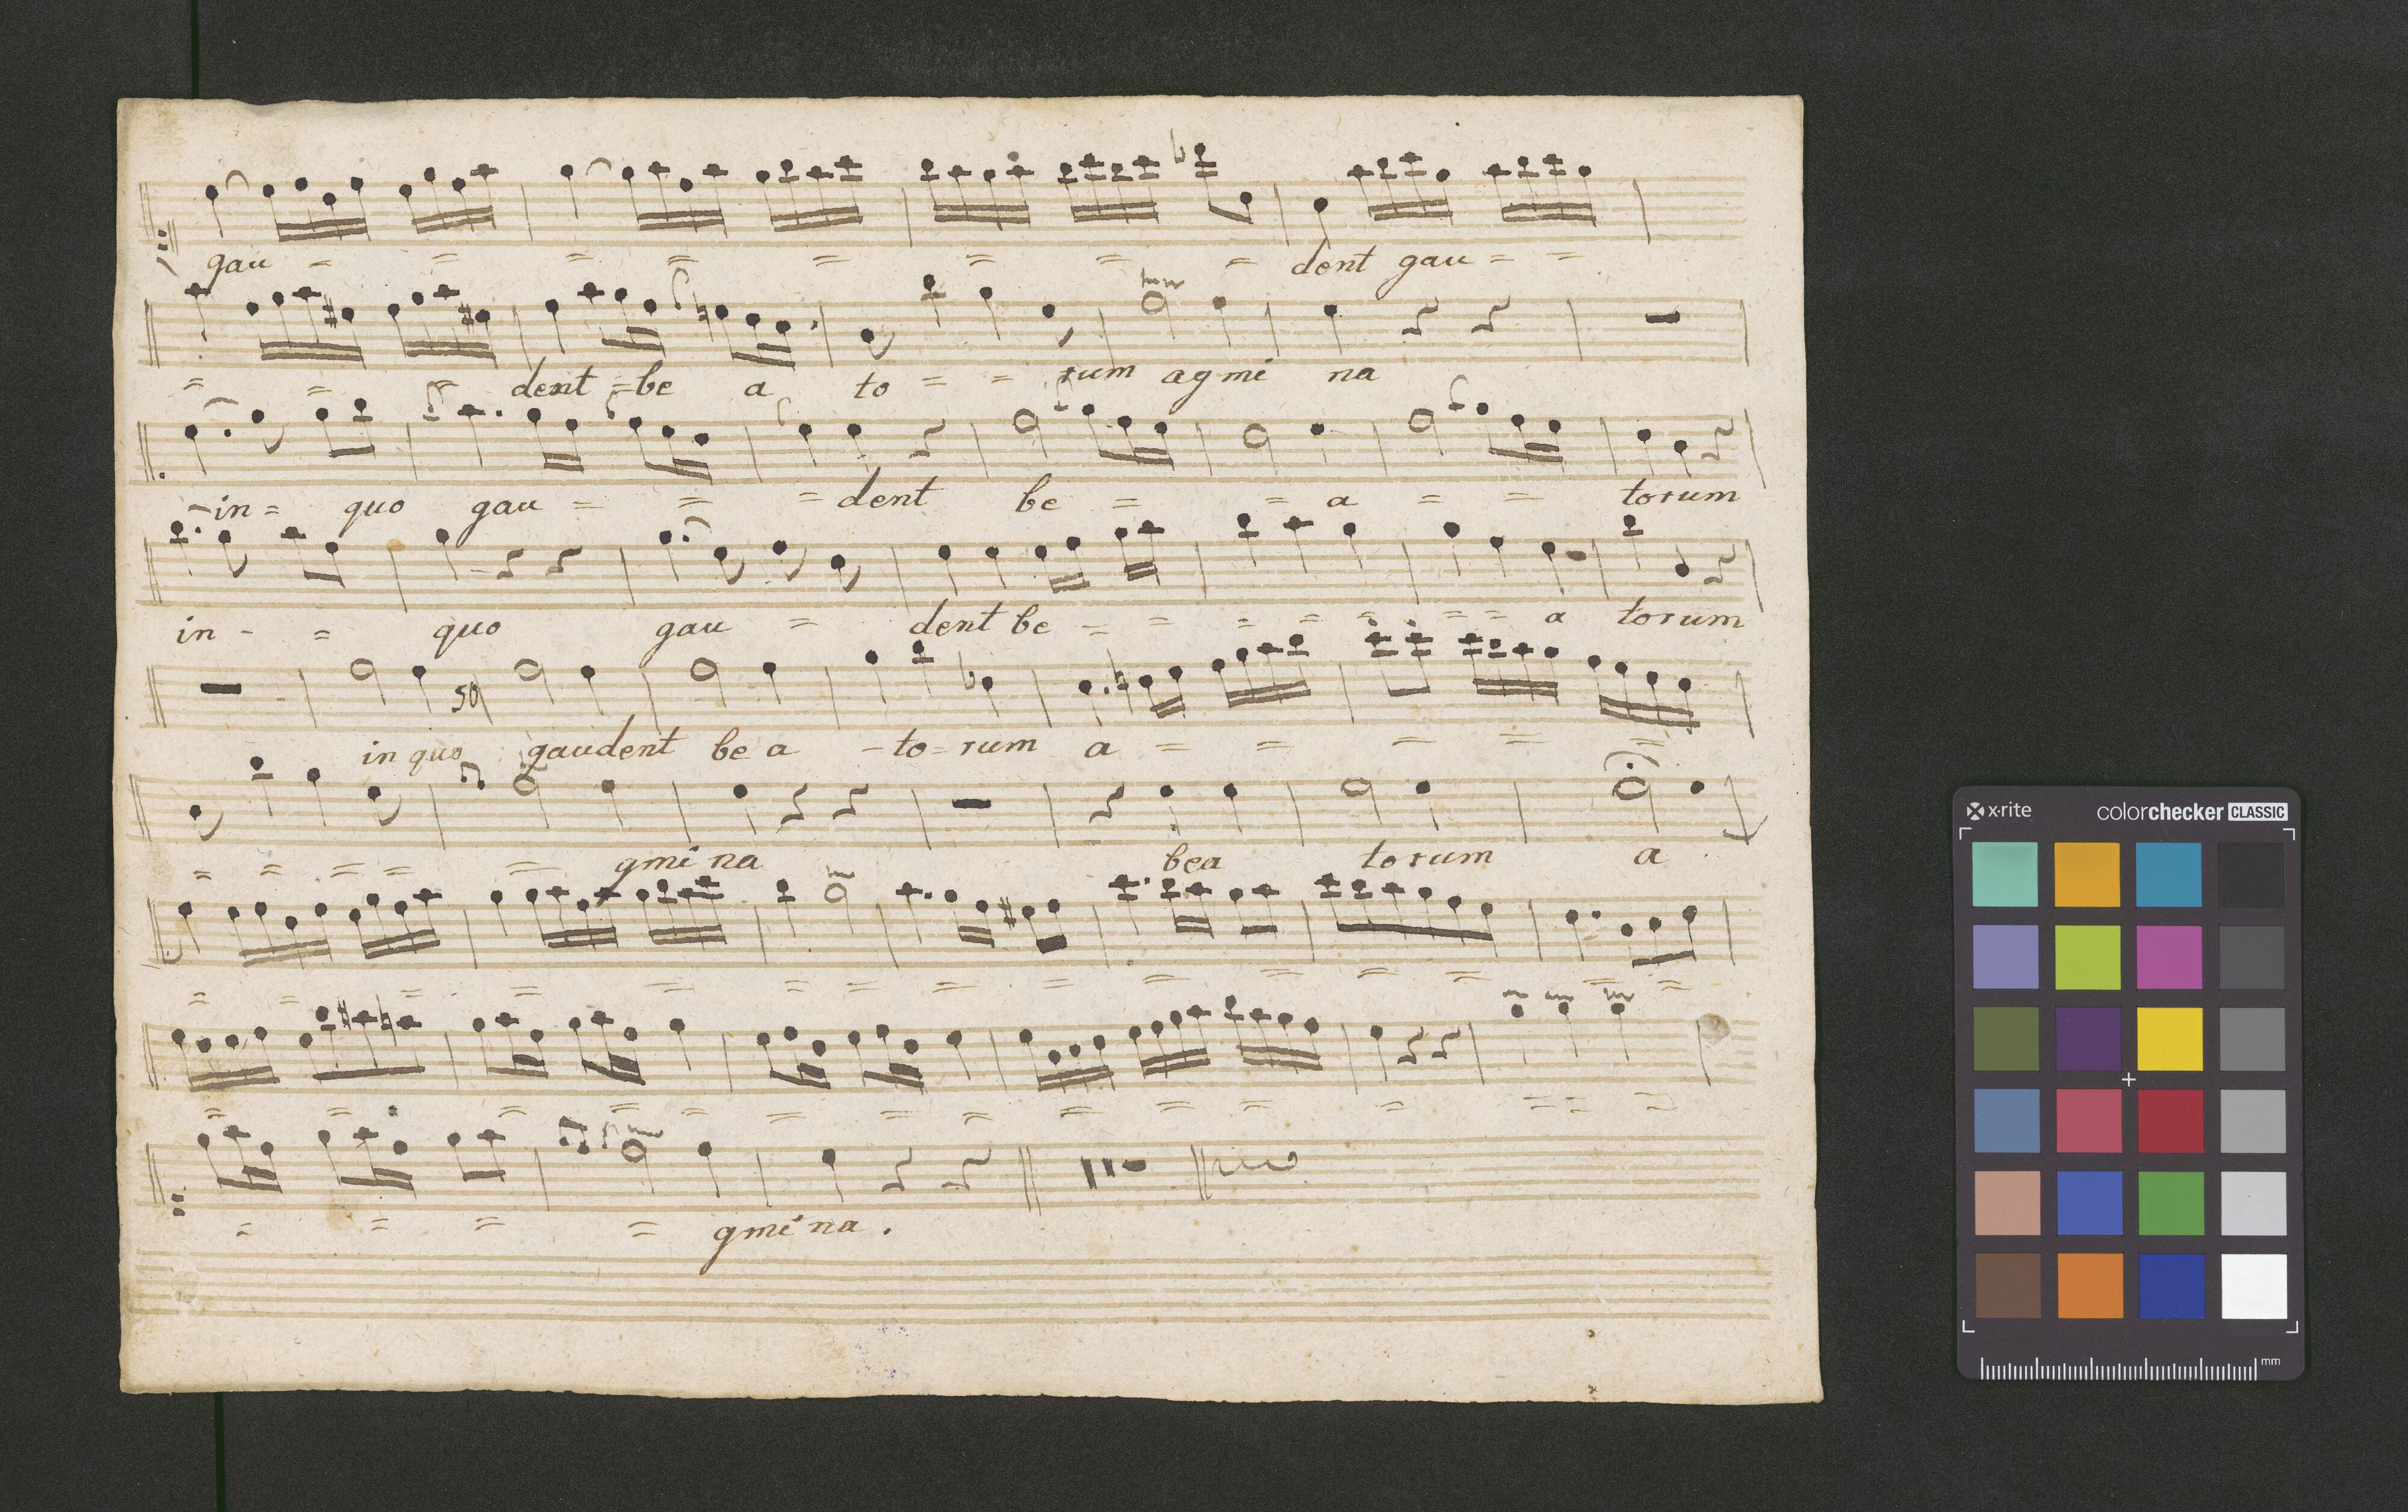 gau = = = = = = = = dent gau = =
= = dent = be a to = = rum agmi na
in = quo gau = = = dent be = = a = = torum
in - = quo gau = dent be = = = = = = = a torum
50
in quo gaudent be a - to = rum a = = = = =
= = = = = gmi na bea torum a
= = = = = = = = = = = = = =
= = = = = = = = = = = = = = =
= = = = gmi na .
x·rite
colorchecker CLASSIC
mm